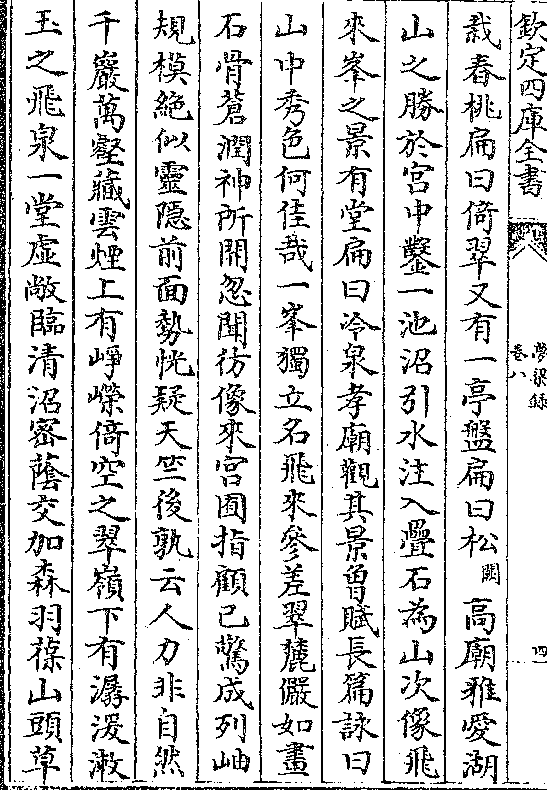 欽定四庫全書
夢粱錄
卷八
四
栽春桃扁曰倚翠又有一亭盤扁曰松闕高廟雅愛湖
山之勝於宫中鑿一池沼引水注入疊石為山次像飛
來峯之景有堂扁曰冷泉孝廟觀其景曾賦長篇詠曰
山中秀色何佳哉一峯獨立名飛來參差翠麓儼如畫
石骨蒼潤神所開忽聞彷像來宫囿指顧已驚成列岫
規模絶似靈隱前面勢恍疑天竺後孰云人力非自然
千巖萬壑藏雲煙上有崢嶸倚空之翠嶺下有潺湲漱
玉之飛泉一堂虛敞臨清沼密蔭交加森羽葆山頭草